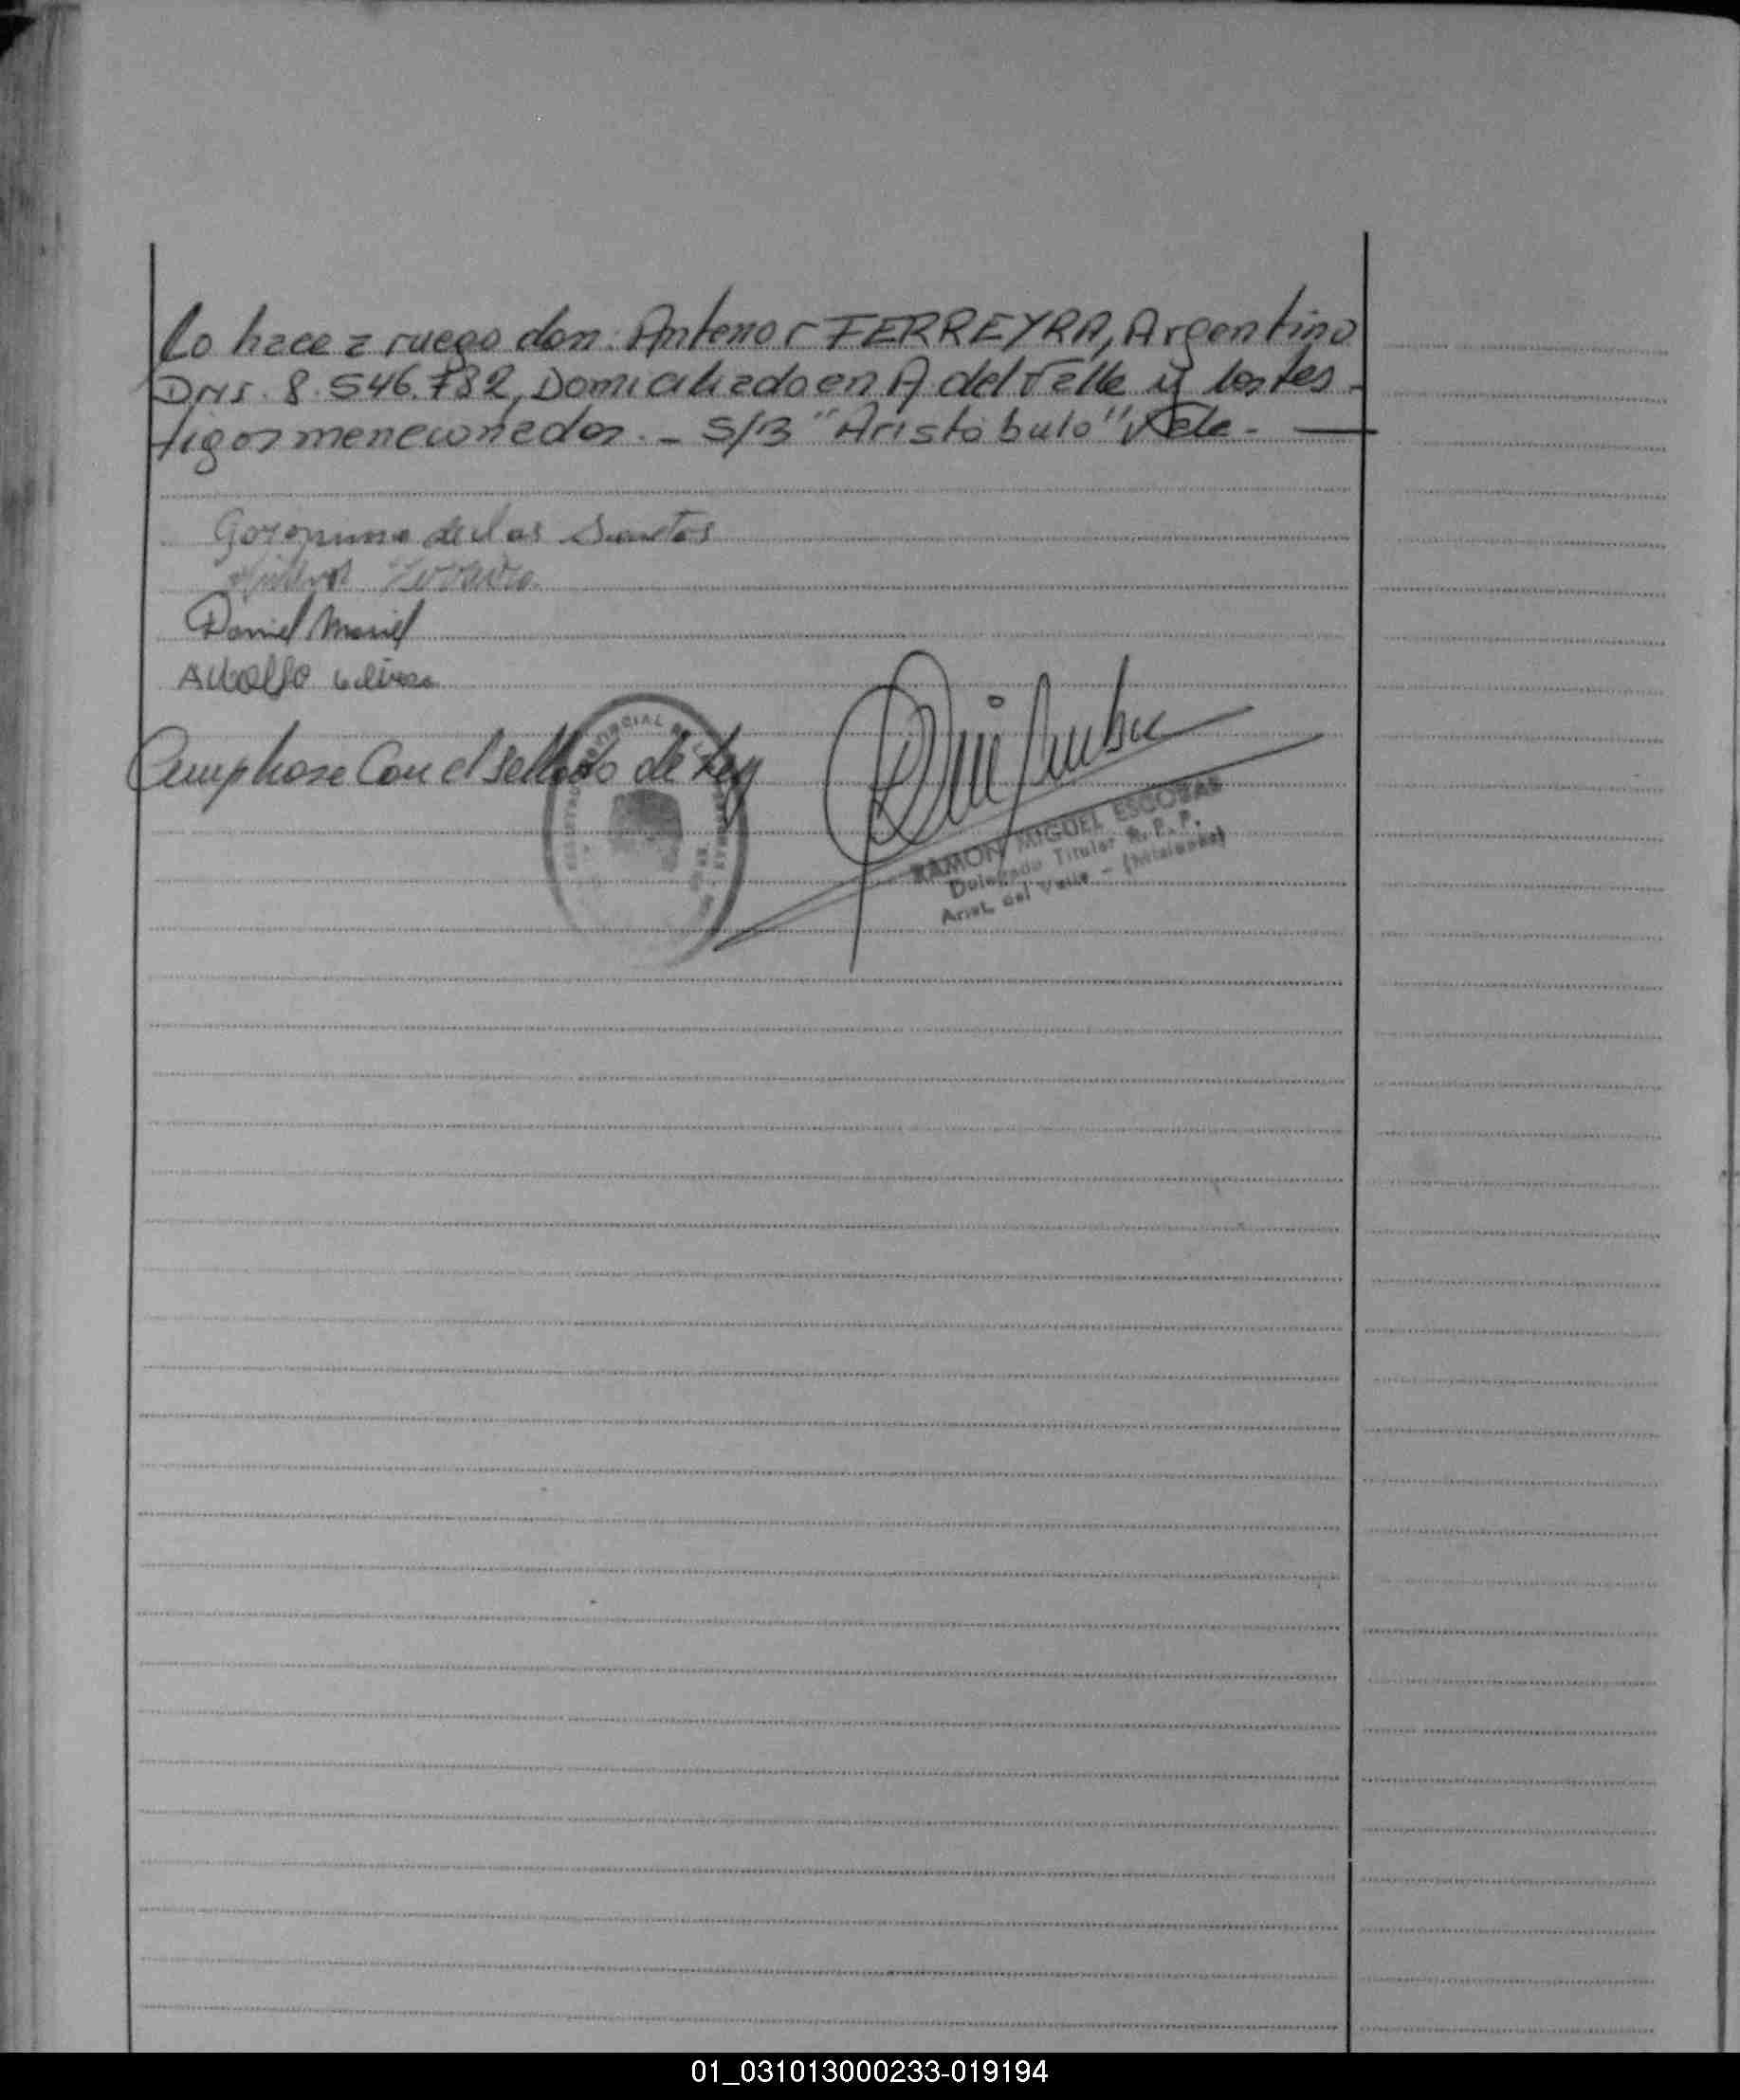 lo hace a ruego don: Antenor FERREYRA, Argentino
DNI. 8.546.782, Domiciliado en A del Valle y los tes-
tigos mencionados. - S/B "Aristóbulo" Vale -
Geronimo de los Santos
Daniel Maciel
Adolfo
Cumplase Con el sellado de Ley
RAMON MIGUEL ESCOBAR
Delegado Titular R. P. P.
Arist. del Valle - (Misiones)
01_031013000233-019194